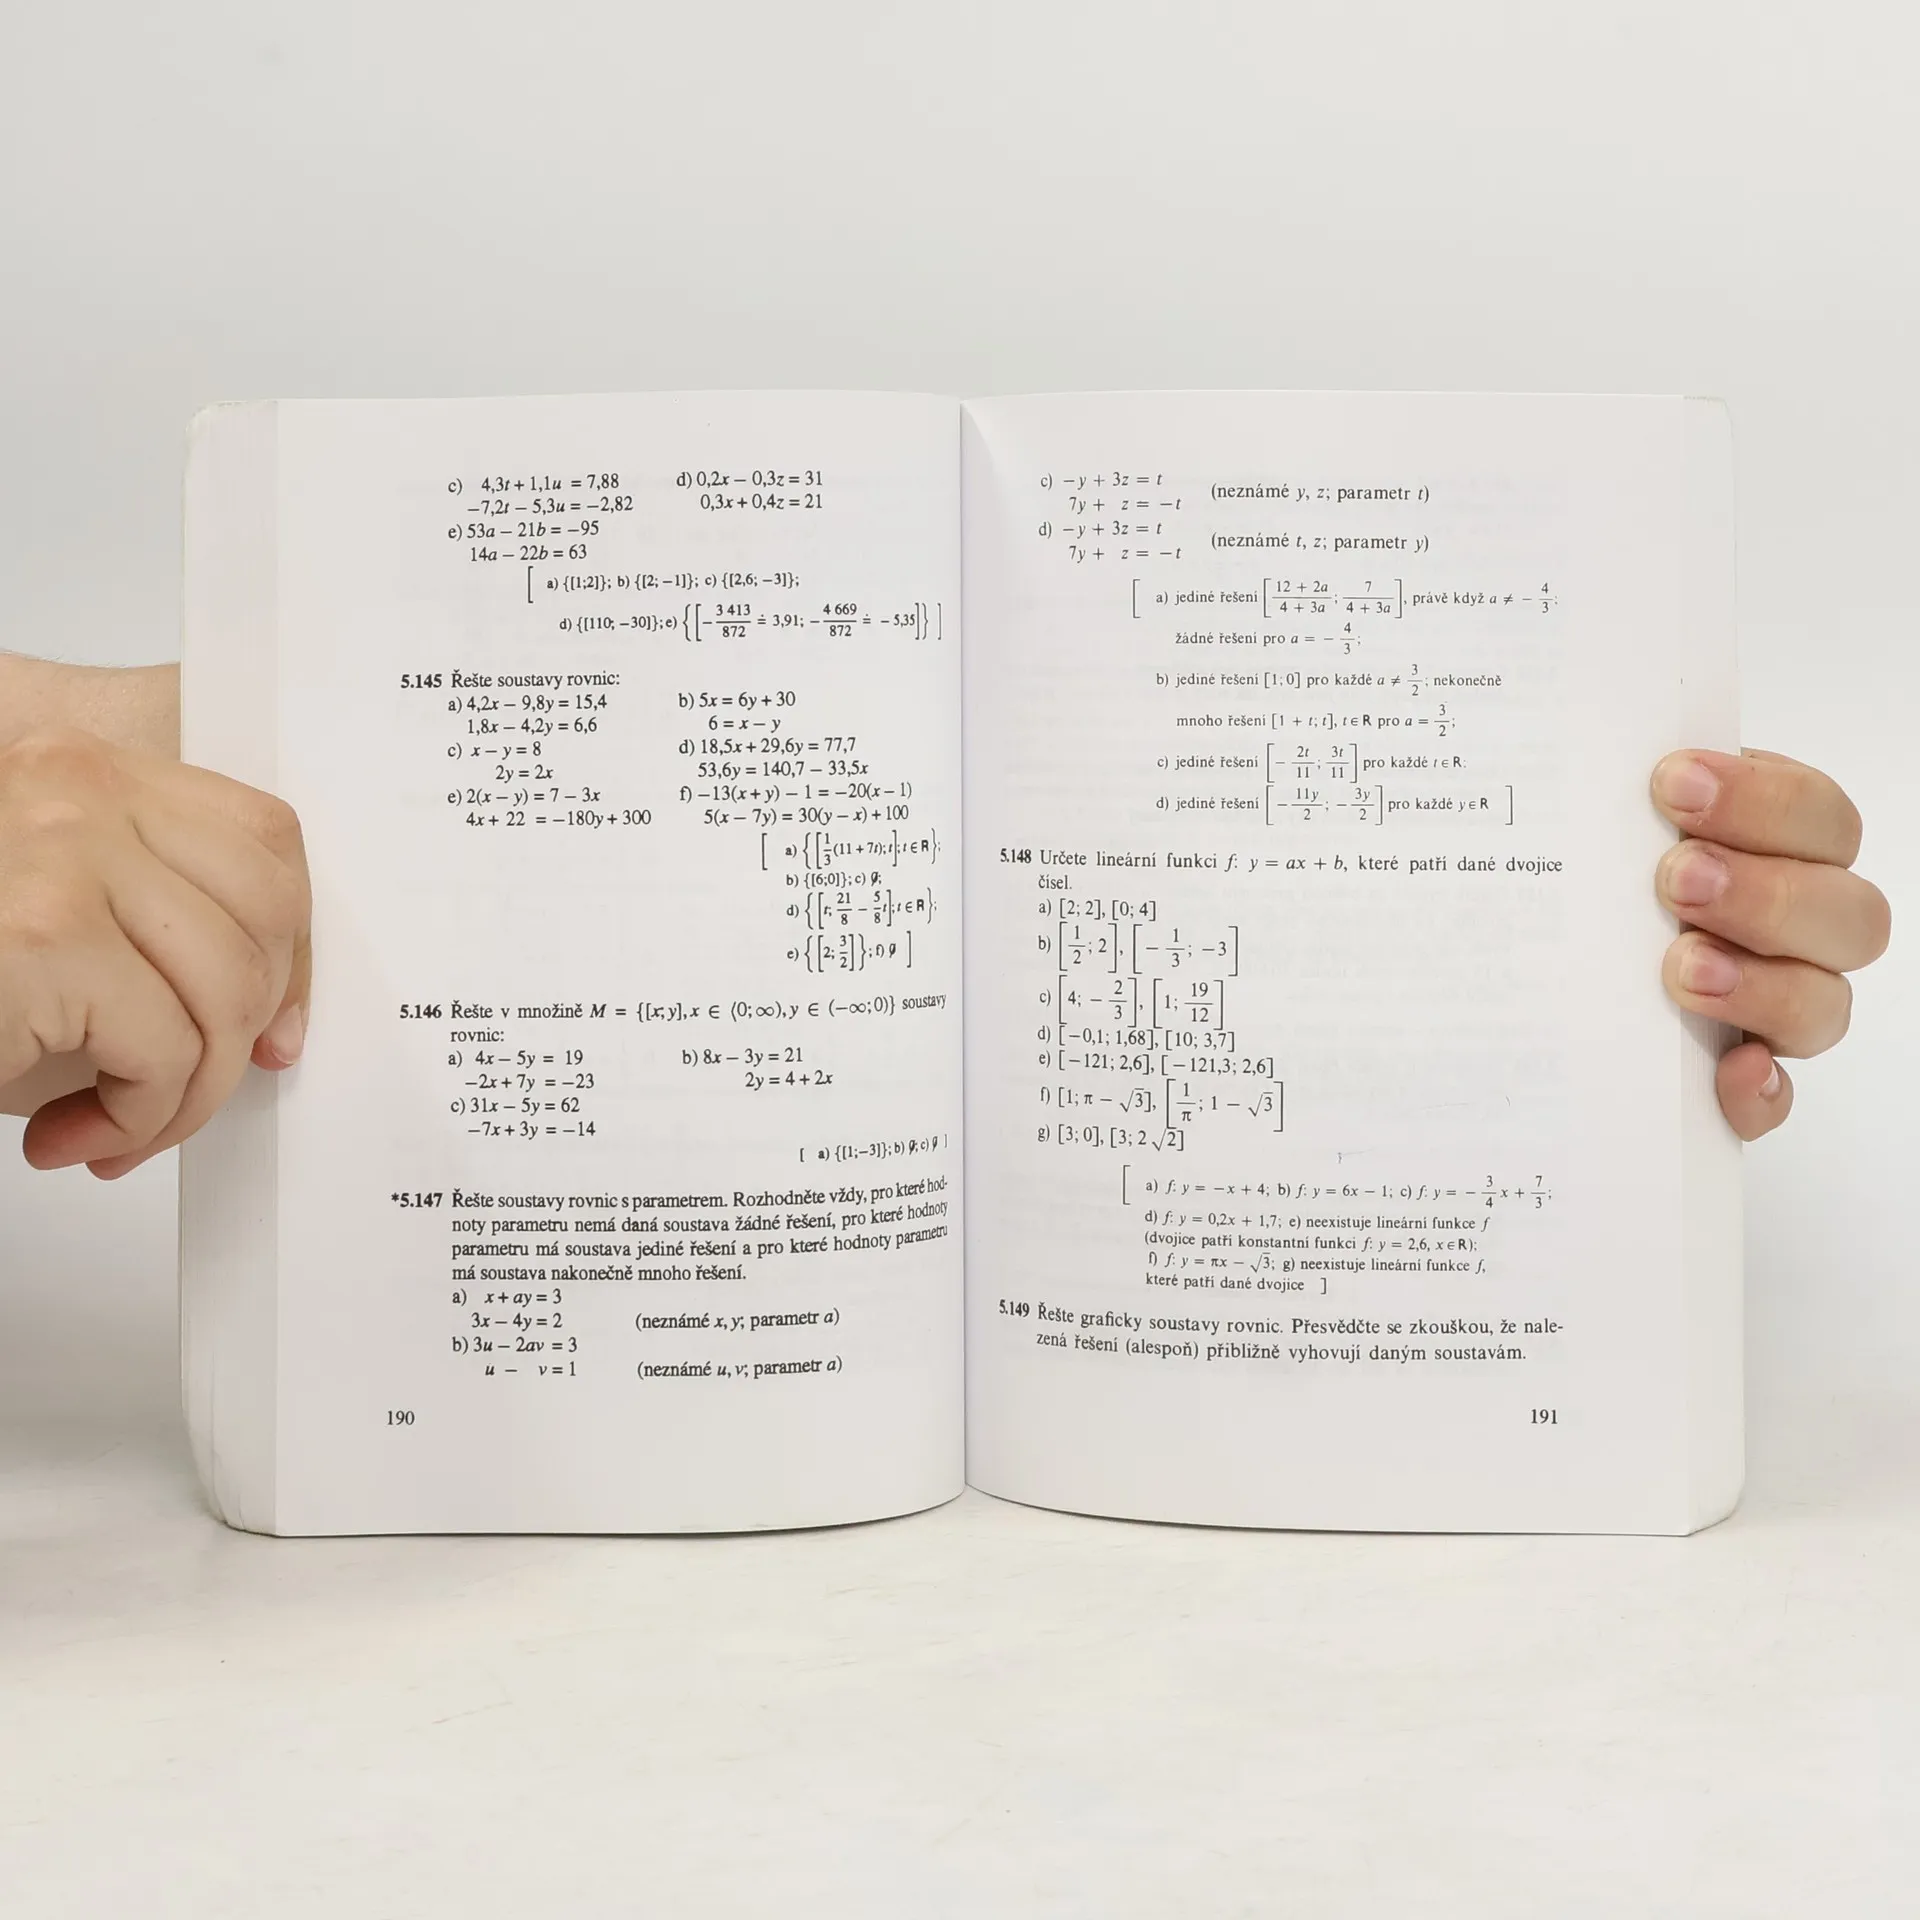 c) 4,3t + 1,1u = 7,88 d) 0,2x − 0,3z = 31
−7,2t − 5,3u = −2,82 0,3x + 0,4z = 21
e) 53a − 21b = −95
14a − 22b = 63
[ a) {[1;2]}; b) {[2; −1]}; c) {[2,6; −3]};
d) {[110; −30]}; e) {[−3 413/872 ≐ 3,91; −4 669/872 ≐ −5,35]} ]
5.145 Řešte soustavy rovnic:
a) 4,2x − 9,8y = 15,4 b) 5x = 6y + 30
1,8x − 4,2y = 6,6 6 = x − y
c) x − y = 8 d) 18,5x + 29,6y = 77,7
2y = 2x 53,6y = 140,7 − 33,5x
e) 2(x − y) = 7 − 3x f) −13(x + y) − 1 = −20(x − 1)
4x + 22 = −180y + 300 5(x − 7y) = 30(y − x) + 100
[ a) {[1/3(11 + 7t); t]; t ∈ R};
b) {[6;0]}; c) ∅;
d) {[t; 21/8 − 5/8t]; t ∈ R};
e) {[2; 3/2]}; f) ∅ ]
5.146 Řešte v množině M = {[x; y], x ∈ ⟨0; ∞), y ∈ (−∞; 0)} soustavy
rovnic:
a) 4x − 5y = 19 b) 8x − 3y = 21
−2x + 7y = −23 2y = 4 + 2x
c) 31x − 5y = 62
−7x + 3y = −14
[ a) {[1;−3]}; b) ∅; c) ∅ ]
*5.147 Řešte soustavy rovnic s parametrem. Rozhodněte vždy, pro které hod-
noty parametru nemá daná soustava žádné řešení, pro které hodnoty
parametru má soustava jediné řešení a pro které hodnoty parametru
má soustava nakonečně mnoho řešení.
a) x + ay = 3
3x − 4y = 2 (neznámé x, y; parametr a)
b) 3u − 2av = 3
u − v = 1 (neznámé u, v; parametr a)
190
c) −y + 3z = t
7y + z = −t (neznámé y, z; parametr t)
d) −y + 3z = t
7y + z = −t (neznámé t, z; parametr y)
[ a) jediné řešení [12 + 2a/4 + 3a; 7/4 + 3a], právě když a ≠ −4/3;
žádné řešení pro a = −4/3;
b) jediné řešení [1; 0] pro každé a ≠ 3/2; nekonečně
mnoho řešení [1 + t; t], t ∈ R pro a = 3/2;
c) jediné řešení [−2t/11; 3t/11] pro každé t ∈ R;
d) jediné řešení [−11y/2; −3y/2] pro každé y ∈ R ]
5.148 Určete lineární funkci f: y = ax + b, které patří dané dvojice
čísel.
a) [2; 2], [0; 4]
b) [1/2; 2], [−1/3; −3]
c) [4; −2/3], [1; 19/12]
d) [−0,1; 1,68], [10; 3,7]
e) [−121; 2,6], [−121,3; 2,6]
f) [1; π − √3], [1/π; 1 − √3]
g) [3; 0], [3; 2√2]
[ a) f: y = −x + 4; b) f: y = 6x − 1; c) f: y = −3/4x + 7/3;
d) f: y = 0,2x + 1,7; e) neexistuje lineární funkce f
(dvojice patří konstantní funkci f: y = 2,6, x ∈ R);
f) f: y = πx − √3; g) neexistuje lineární funkce f,
které patří dané dvojice ]
5.149 Řešte graficky soustavy rovnic. Přesvědčte se zkouškou, že nale-
zená řešení (alespoň) přibližně vyhovují daným soustavám.
191